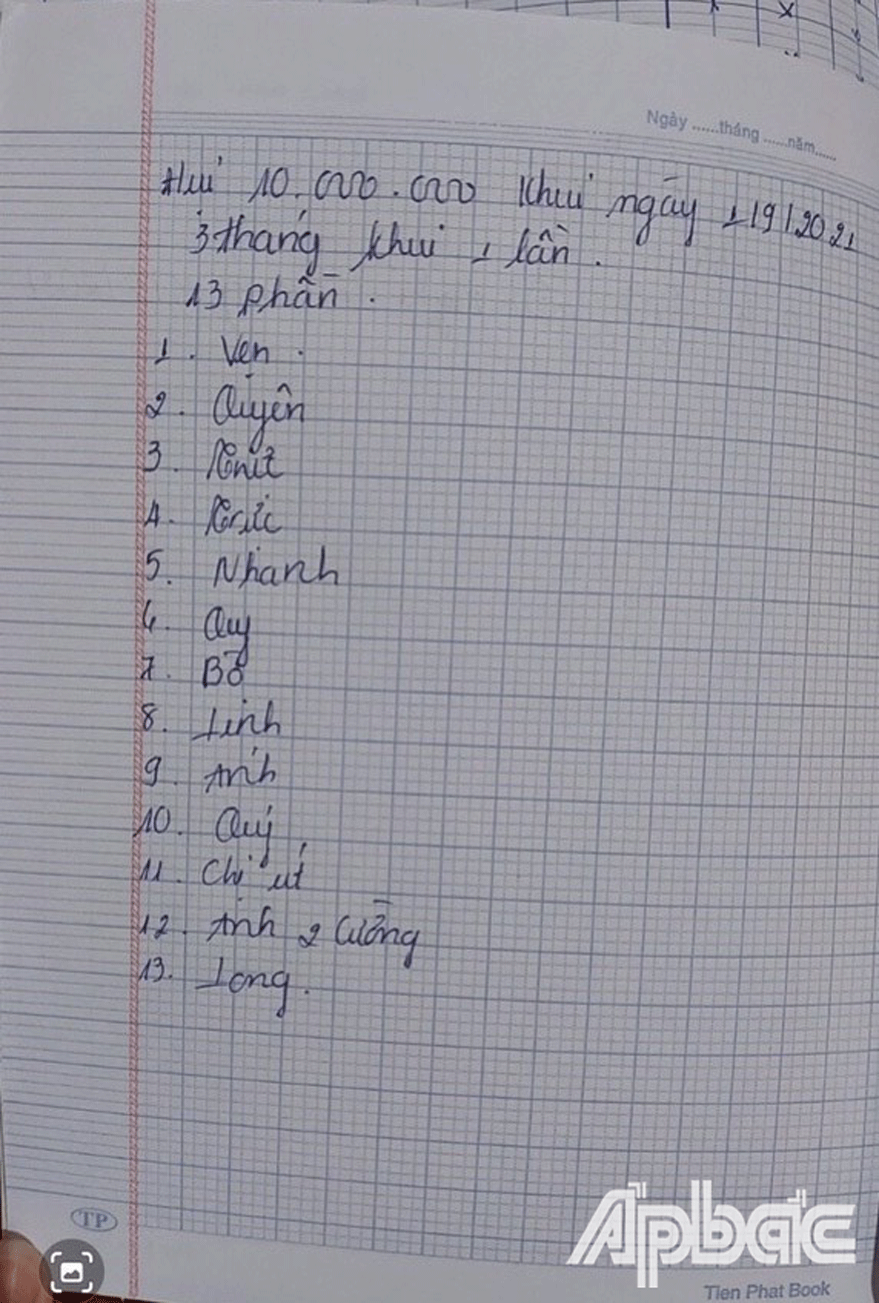 Ngày ......tháng ......năm......
Hụi 10.000.000 Khui ngày 1/9/2021
3 tháng khui 1 lần.
13 phần.
1. Vẹn.
2. Quyên
3.
4. Trúc
5. Nhanh
6. Quy
7. Bồ
8. Linh
9. Anh
10. Quý
11. Chị út
12. Anh 2 Cường
13. Long.
TP
Apbac
Tien Phat Book